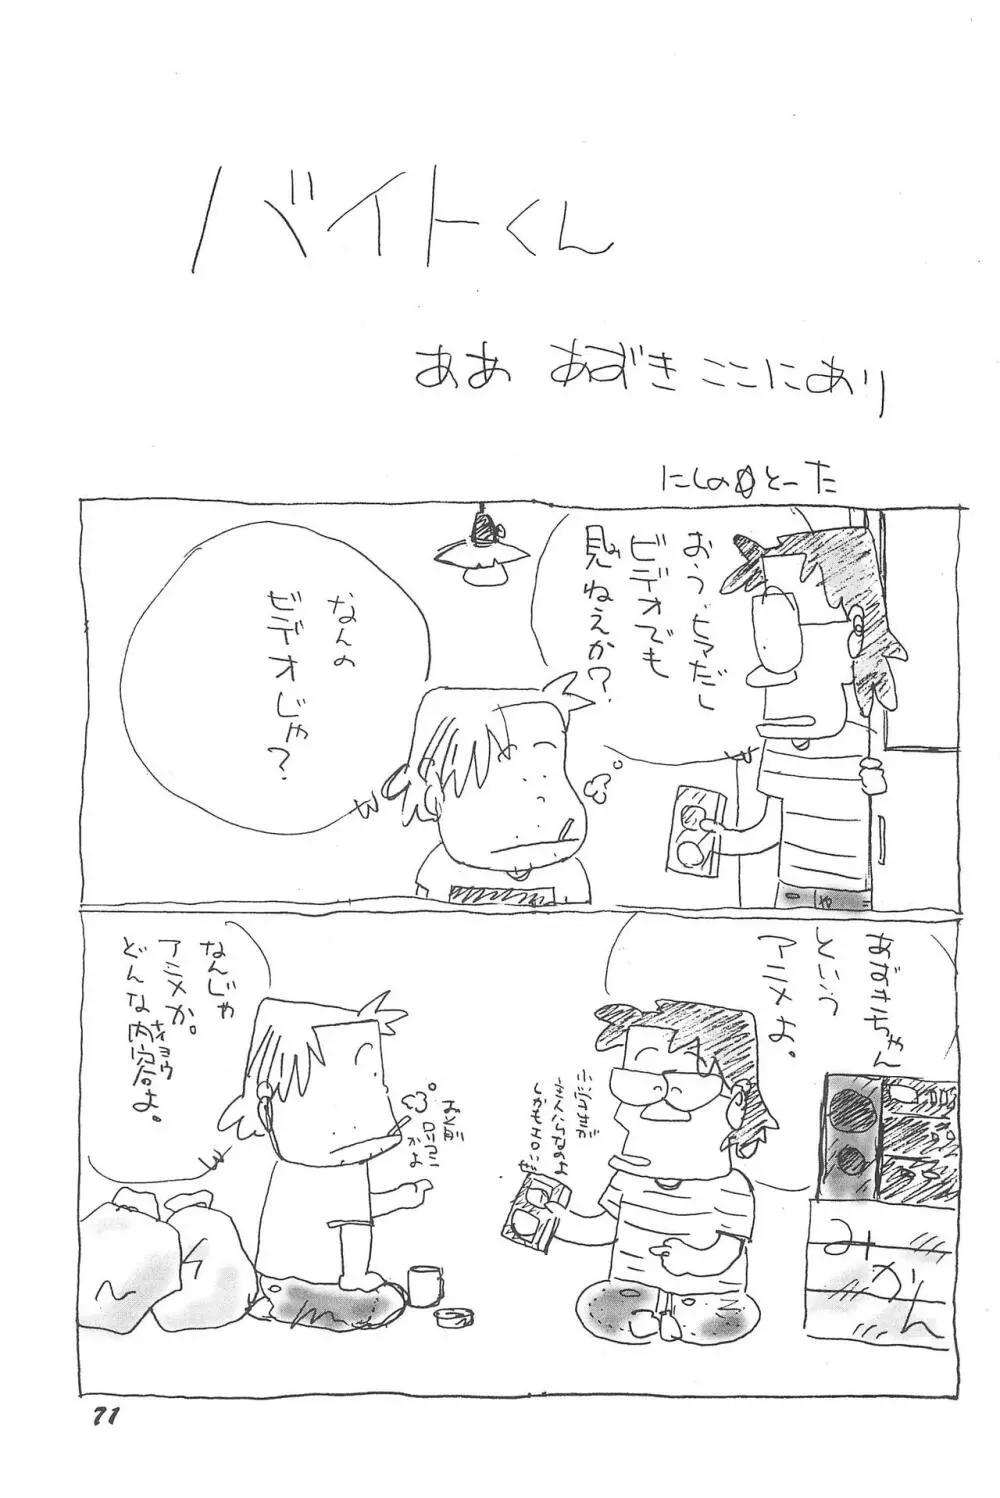 バイトくん
ああ あずき ここにあり
にしのとーた
おう、ヒマだし
ビデオでも
見ねえか?
なんの
ビデオじゃ?
あずきちゃん
という
アニメよ。
小学生が
主人公なのよ
しかもエロ
お前
ロリコン
かよ
なんじゃ
アニメか。
どんな内容よ。
ナイヨウ
みかん
71